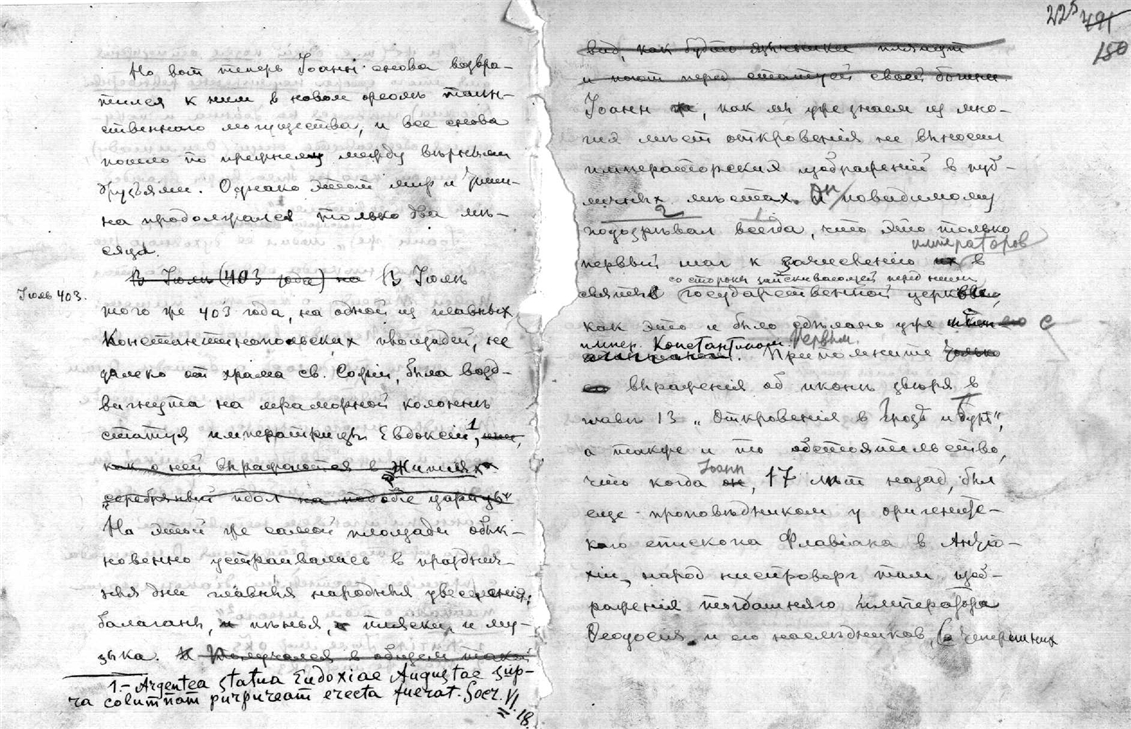 Но вот теперь Іоанн снова возвра-
тился к ним в новом ореоле таин-
ственного могущества, и все снова
пошло по прежнему между верными
друзьями. Однако этот мир и тиши-
на продолжался только два мѣ-
сяца.
Іюль 403.
В Іюлѣ (403 года) на (В Іюлѣ
того же 403 года, на одной из главных
Константинопольских площадей, не
далеко от храма св. Софіи, была возд-
вигнута на мраморной колоннѣ
статуя императрицы Евдоксіи 1,
как о ней выражаются в Житіях
серебряный идол на подобіе царицы
На этой же самой площади обык-
новенно устраивались в празднич-
ные дни главныя народныя увеселенія,
балаганы, и пѣнья, пляски, и му-
зыка. И Получался в общем такой
1.– Argentea statua Eudoxiae Augustae sup-
ra columnam purpuream erecta fuerat. Socr. VI. 18.
225 491
150
вид, как будто язычники пляшут
и поют перед статуей своей богини
Іоанн, как мы уже знаем из мно-
гих мѣст откровенія не выносил
императорских изображеній в пуб-
личных мѣстах. Он повидимому
2 1
подозрѣвал всегда, что это только
императоров
первый шаг к зачисленію их в
со стороны заискивающей перед ними
святые государственной церкви,
как это и было сдѣлано уже с
импер. Константином Первым.
Припомните только
выраженія об иконѣ звѣря в
главѣ 13 „Откровенія в Грозѣ и Бурѣ“,
а также и то обстоятельство,
Іоанн
что когда он, 17 лѣт назад, был
еще проповѣдником у оригенитс-
кого епископа Флавіана в Антіо-
хіи, народ ниспроверг там изоб-
раженія тогдашняго императора
Ѳеодосія и его наслѣдников,